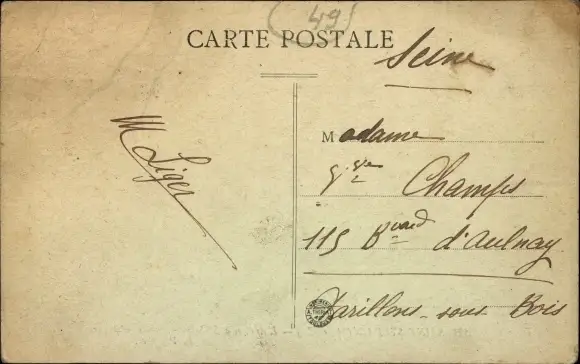 (49)
CARTE POSTALE
Seine
M Liger
Madame
Champs
115 Bvard d'Aulnay
Parillons-sous Bois